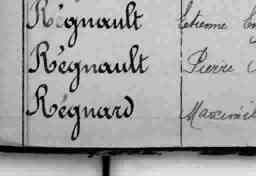 Régnault Etienne
Régnault Pierre
Régnard